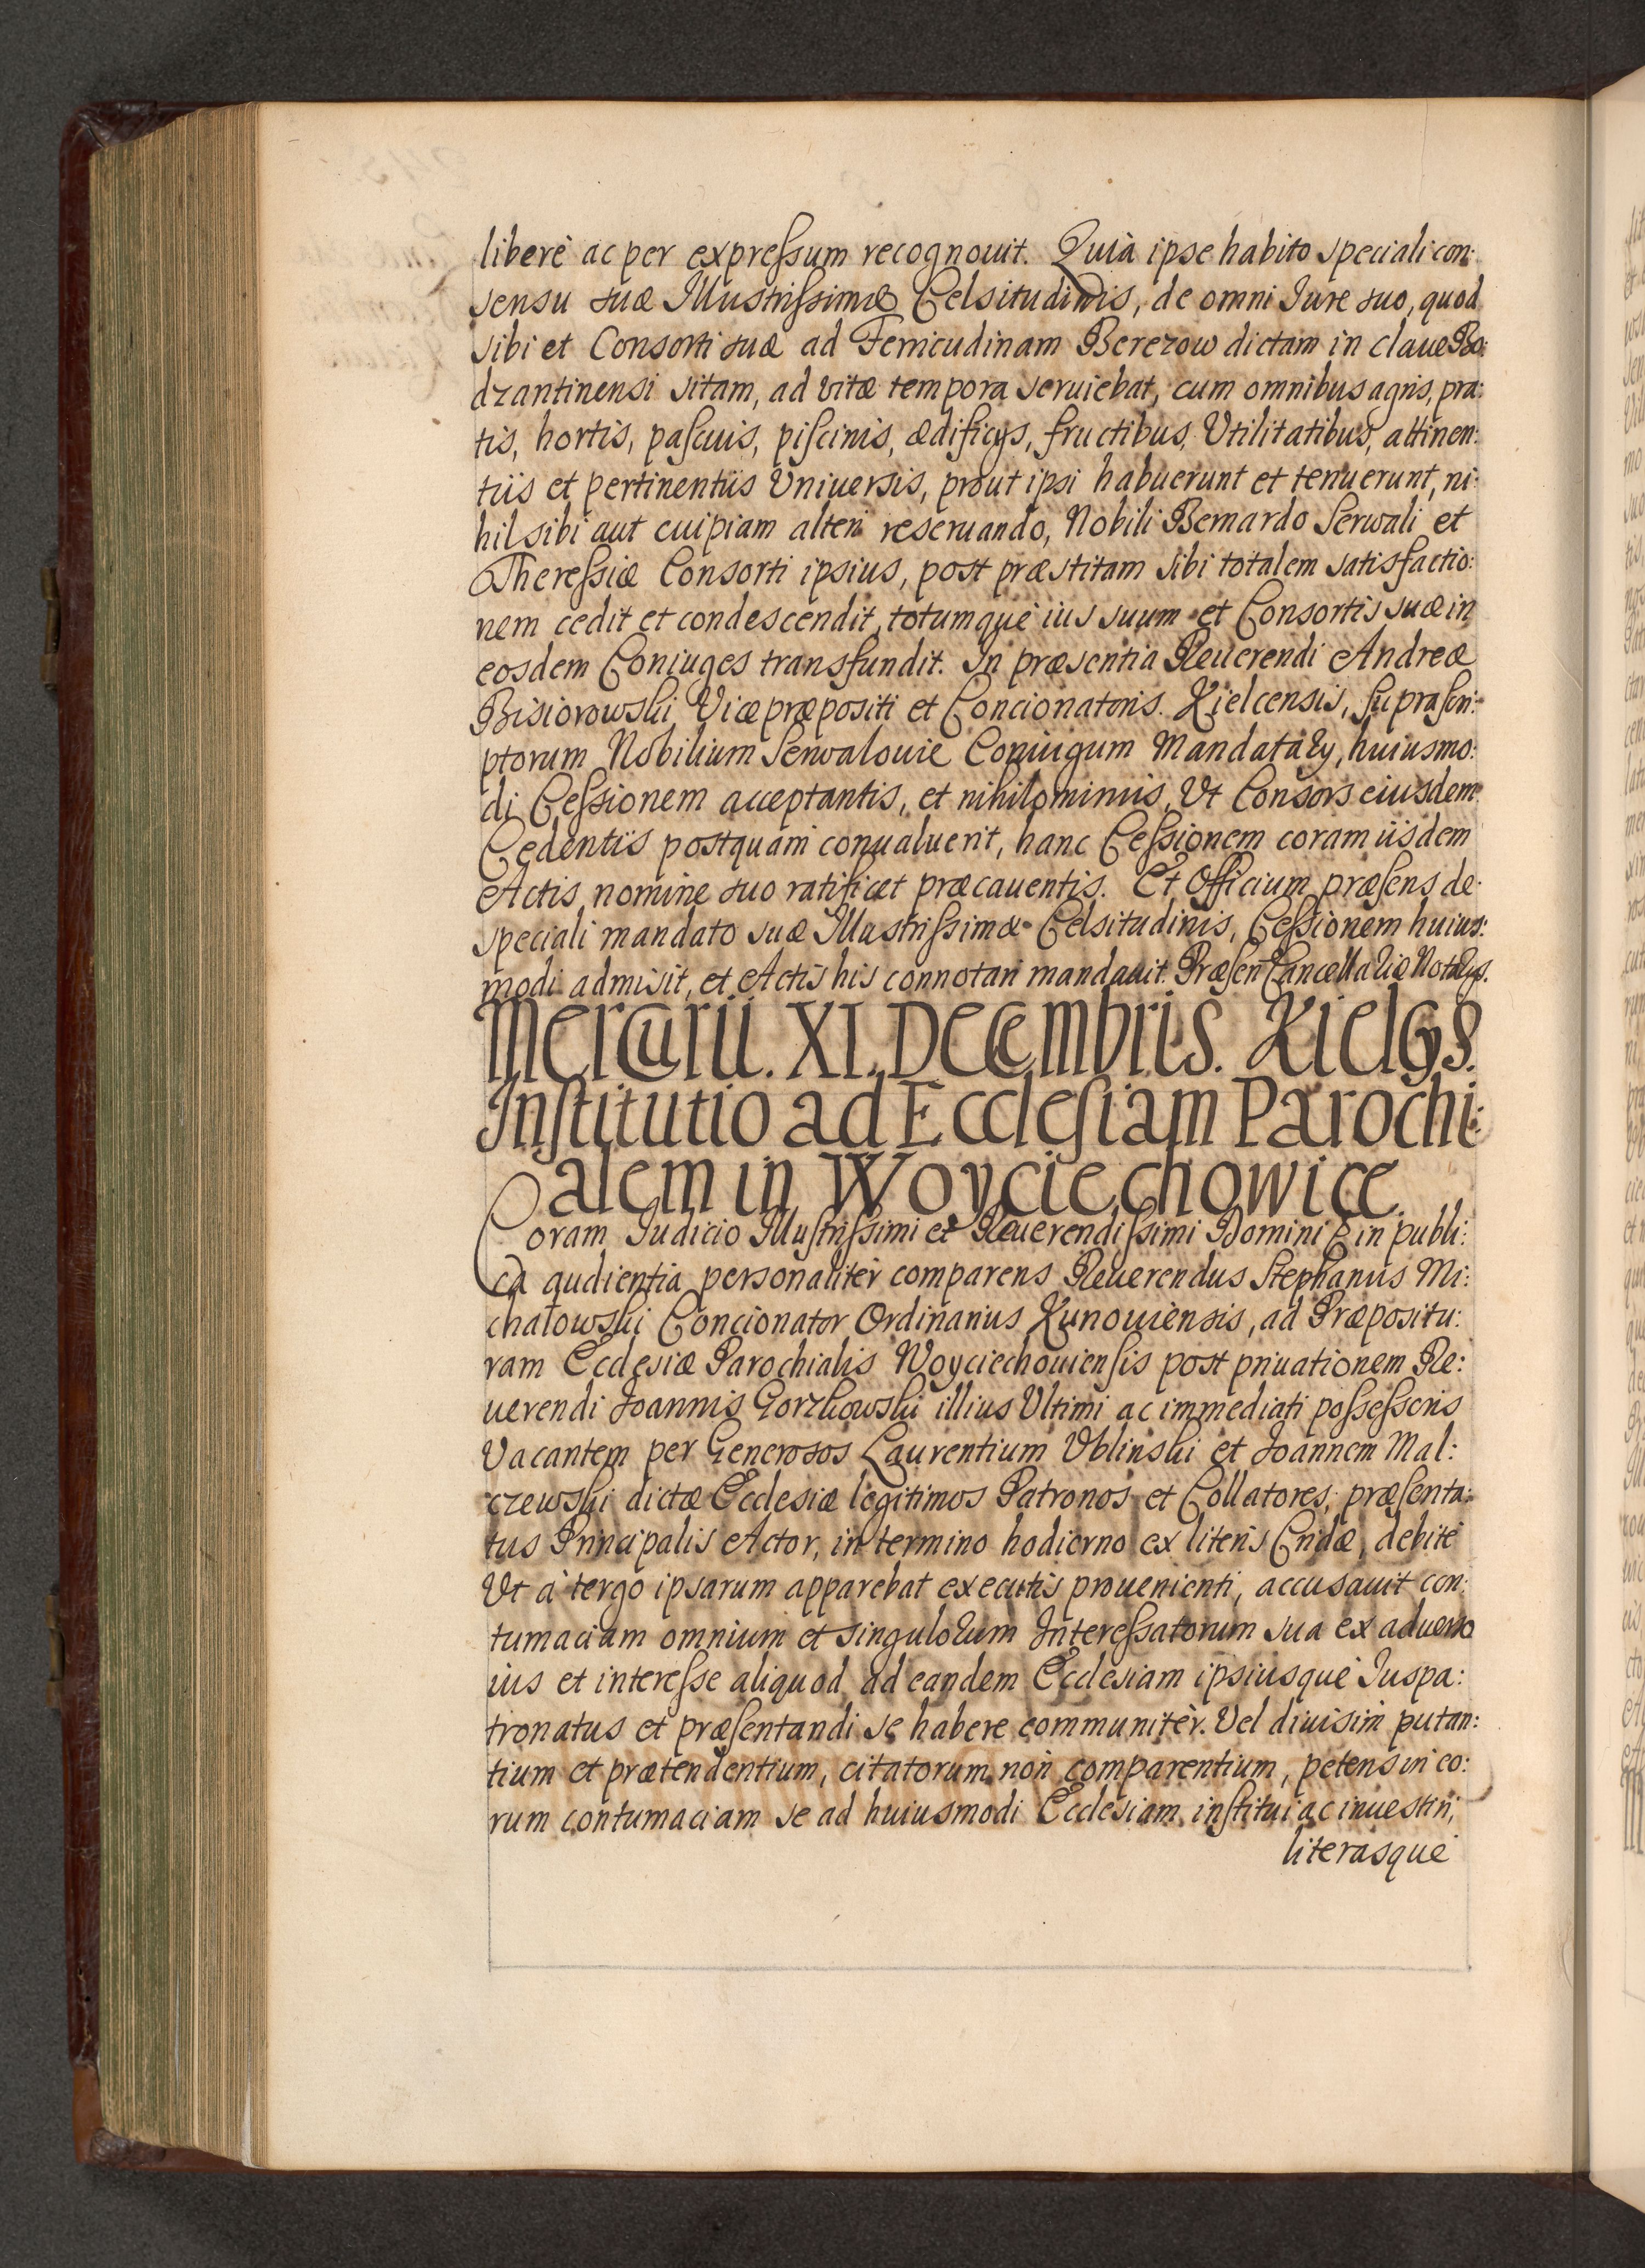 liberè ac per expreſsum recognouit. Quià ipse habito speciali con:
sensu suæ Illustriſsimæ Celsitudinis, de omni Iure suo, quod
sibi et Consorti suæ ad Ferricudinam Berezow dictam in claue Bo:
dzantinensi sitam, ad vitæ tempora seruiebat, cum omnibus agris, pra:
tis, hortis, paſcuis, piſcinis, ædificijs, fructibus, Vtilitatibus, attinen:
tiis et pertinentiis Vniuersis, prout ipsi habuerunt et tenuerunt, ni:
hil sibi aut cuipiam alteri reseruando, Nobili Bernardo Serwali et
Thereſsiæ Consorti ipsius, post præstitam sibi totalem satisfactio:
nem cedit et condescendit, totumquè ius suum et Consortis suæ in
eosdem Coniuges transfundit. In præsentia Reuerendi Andreæ
Bisiorowski Vicæpræpositi et Concionatoris Kielcensis, supraſcri:
ptorum Nobilium Serwalouie Coniugum Mandatarij, huiusmo:
di Ceſsionem acceptantis, et nihilominus, Vt Consors eiusdem
Cedentis postquam conualuerit, hanc Ceſsionem coram iisdem
Actis nomine suo ratificet præcauentis. Et Officium præſens de
speciali mandato suæ Illustriſsimæ Celsitudinis, Ceſsionem huius:
modi admisit, et Actis his connotari mandauit. Præſen Cancellariæ Notarijs.
Mercurii. XI. Decembris. Kielcys.
Inſtitutio ad Eccleſiam Parochi:
alem in Woyciechowice.
Coram Iudicio Illuſtriſsimi et Reuerendiſsimi Domini & in publi:
ca audientia personalitèr comparens Reuerendus Stephanus Mi:
chalowski Concionator Ordinarius Kunouiensis, ad Præpositu:
ram Ecclesiæ Parochialis Woyciechouienſis post priuationem Re:
uerendi Joannis Gorzkowski illius Vltimi ac immediati poſseſsoris
Vacantem per Generosos Laurentium Vblinski et Joannem Mal:
czewski dictæ Ecclesiæ legitimos Patronos et Collatores, præſenta:
tus Principalis Actor, in termino hodierno ex literis Cridæ, debitè
Vt à tergo ipsarum apparebat executis prouenienti, accusauit con:
tumaciam omnium et singulorum Intereſsatorum sua ex aduerso
ius et intereſse aliquod ad eandem Ecclesiam ipsiusquè Iuspa:
tronatus et præſentandi se habere communitèr. Vel diuisim putan:
tium et prætendentium, citatorum non comparentium, petens in eo:
rum contumaciam se ad huiusmodi Ecclesiam inſtitui ac inuestiri,
literasquè